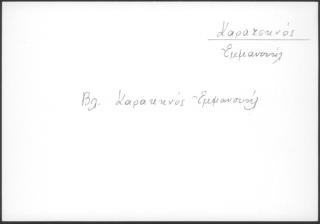 Καρατσηνός
Ἐμμανουήλ
Βλ. Καρακηνός Ἐμμανουήλ